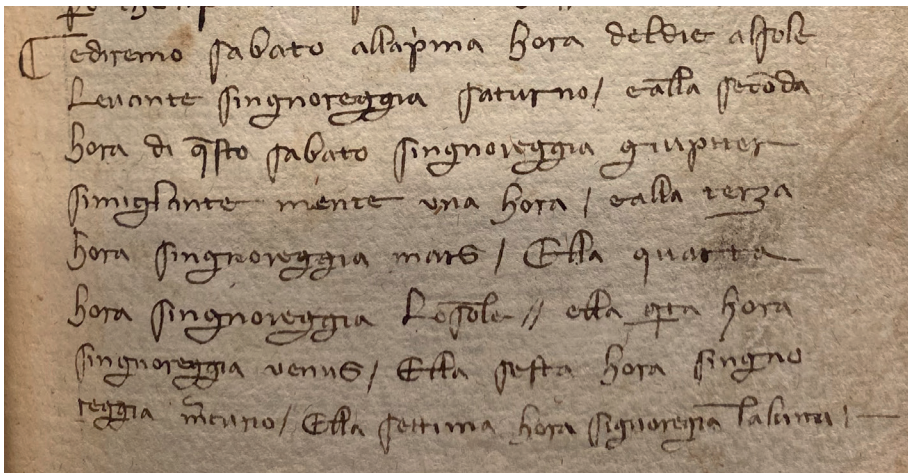 ediremo sabato allap̄ma hora deldie alsole
Leuante singnoreggia saturno / ealla secōda
hora di q̄sto sabato singnoreggia giupiter
simigłante mente vna hora / ealla terza
hora singnoreggia mars / Ella quarta
hora singnoreggia Losole // ella q̄ta hora
singnoreggia venus / Ella sesta hora singno
reggia m̄curio / Ella settima hora signoregia laluna /